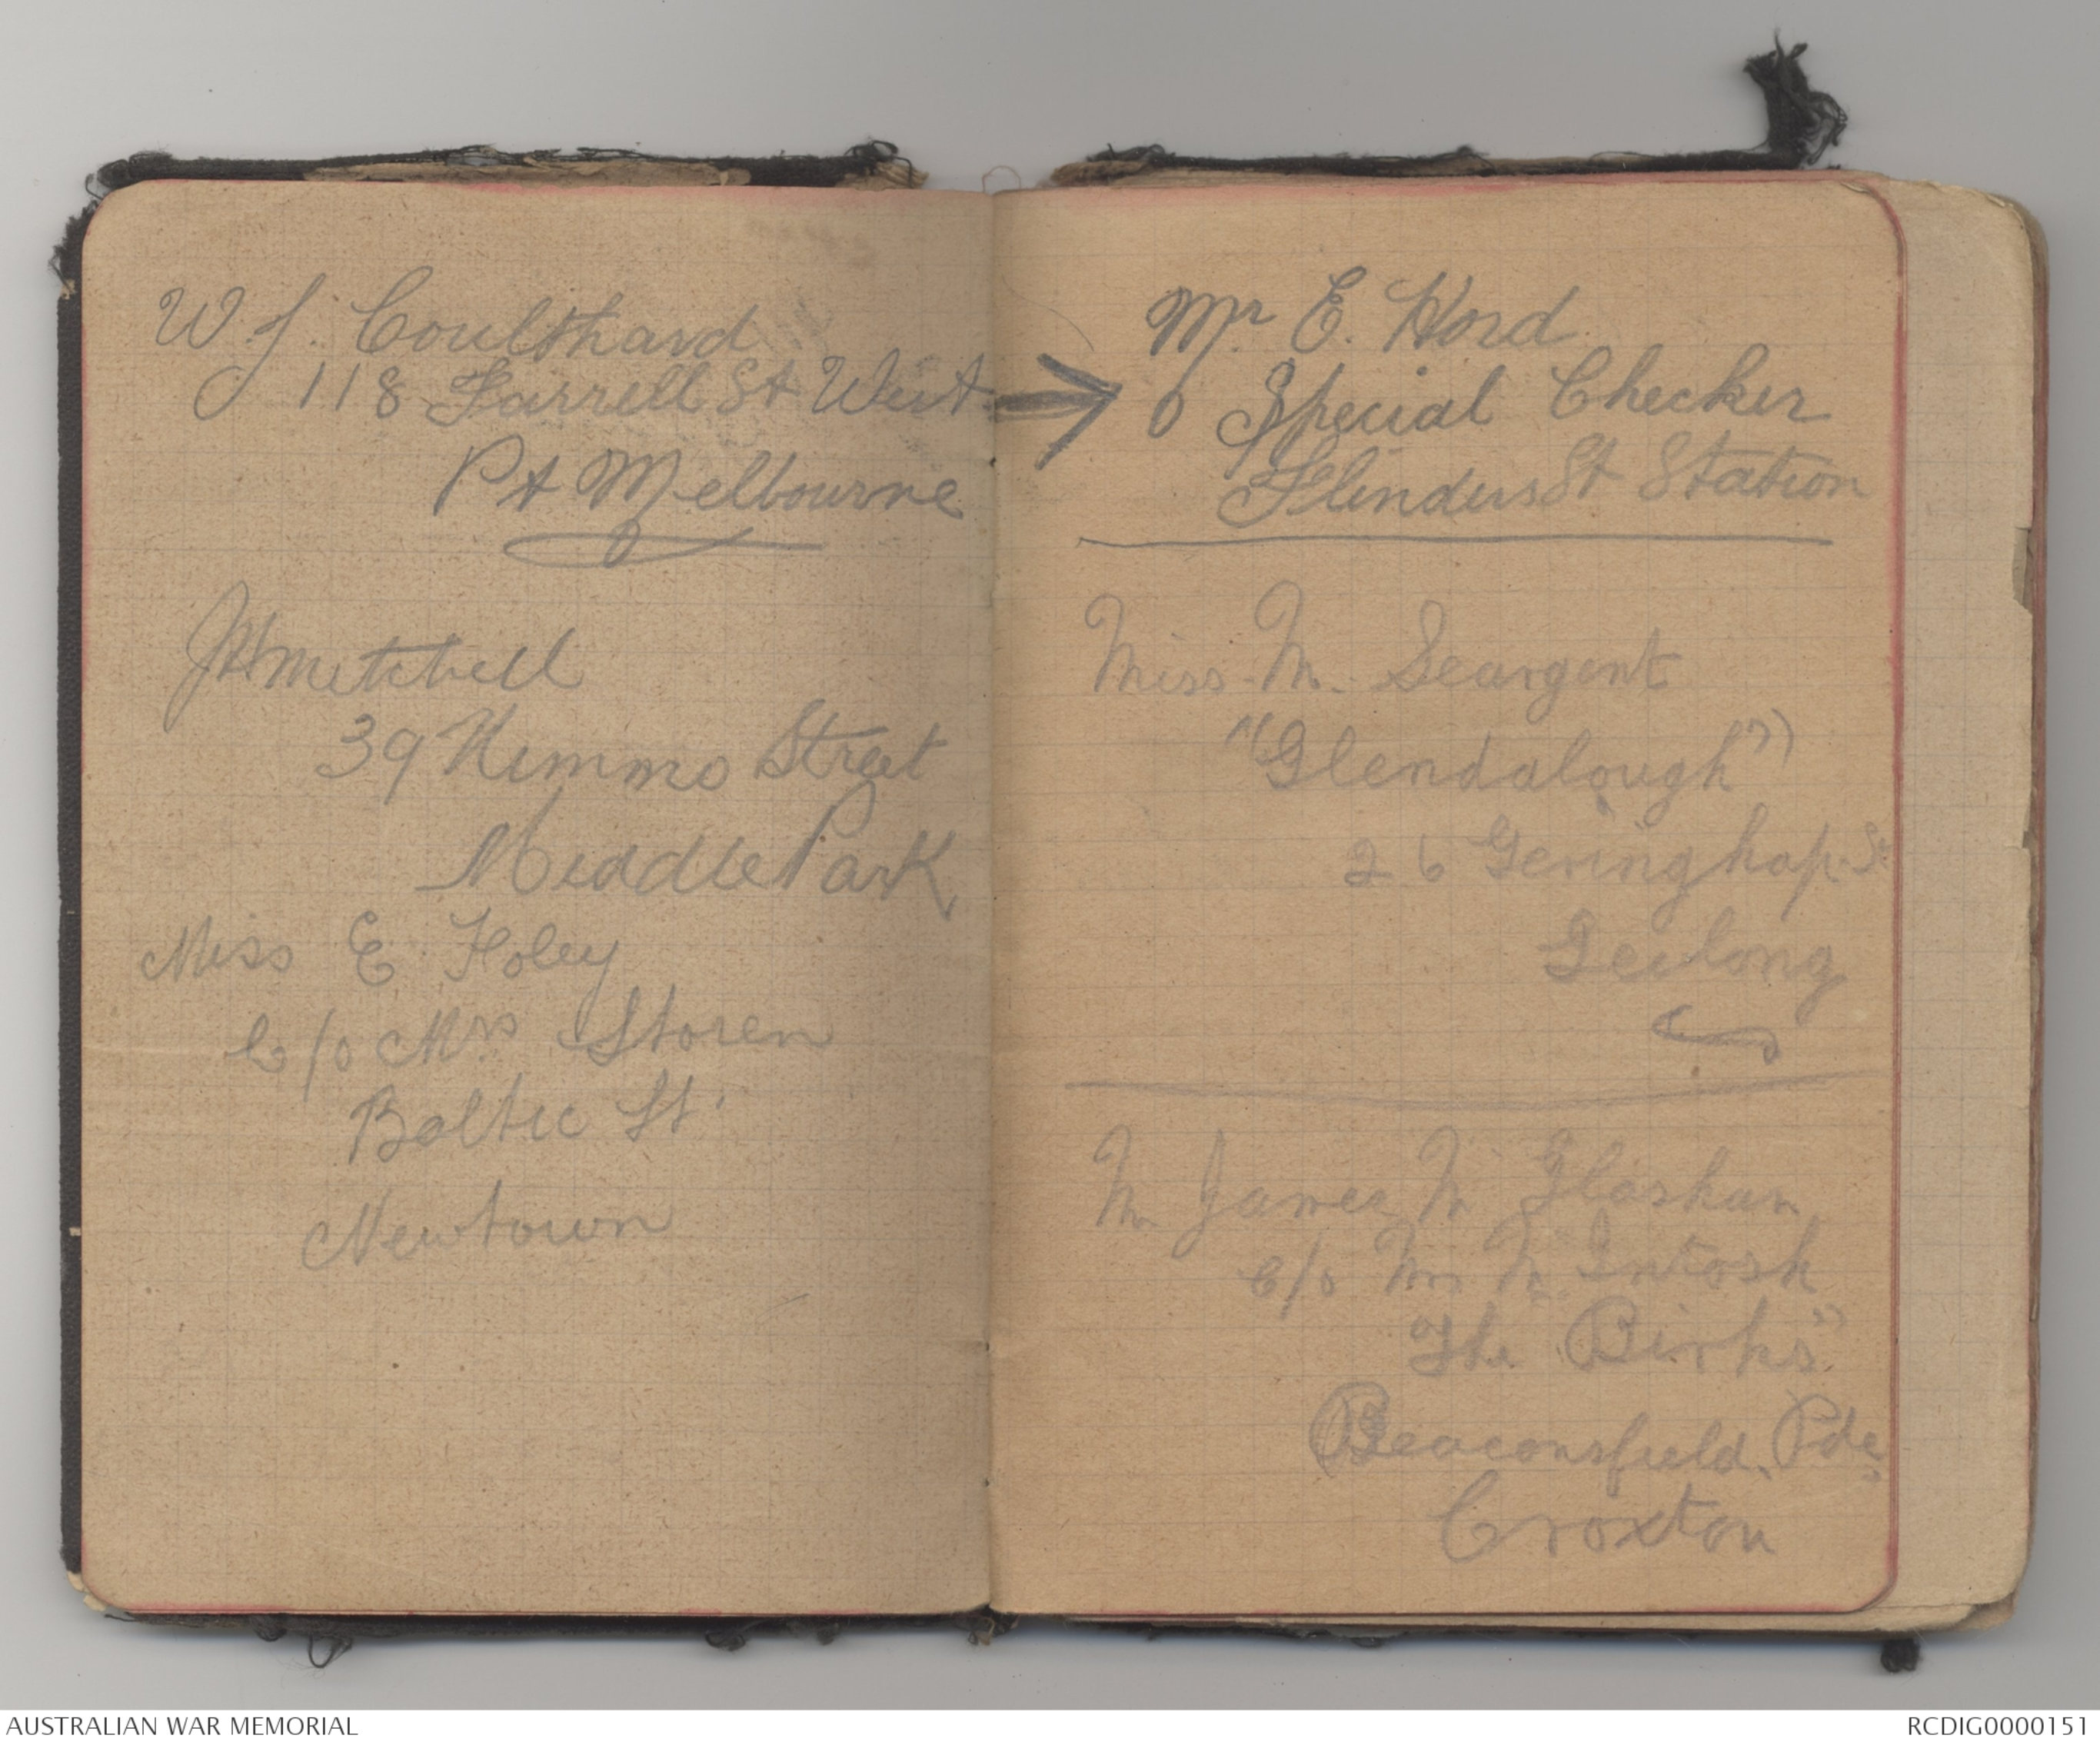 W. J. Coulthard
118 Farrell St West
Pt Melbourne
JH Mitchell
39 Nimmo Street
Middle Park
Miss E. Foley
C/o Mrs Storen
Baltic St.
Newtown
Mr E. Hord
Special Checker
Flinders St Station
Miss. M. Seargent
"(Glendalough")
26 Geringhap. St
Geelong
Mr James Mc Glashan
c/o Mrs Mc Intosh
The Birks"
Beaconsfield. Pde,
Croxton
AUSTRALIAN WAR MEMORIAL
RCDIG0000151